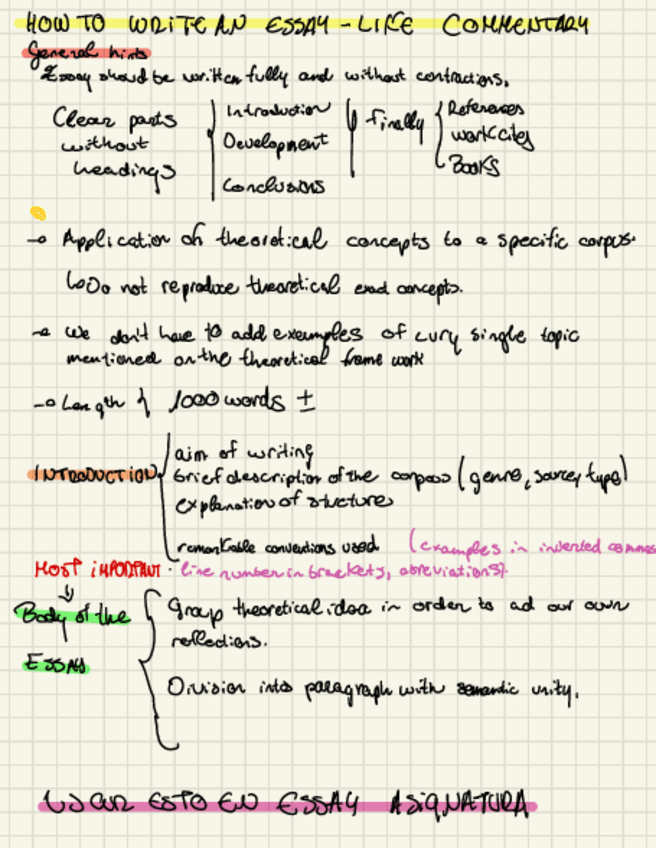 HOW TO WRITE AN ESSAY-LIKE COMMENTARY
General hints
Essay should be written fully and without contractions.
Clear parts
without
headings
Introduction
Development
Conclusions
finally
References
work cites
Books
Application of theoretical concepts to a specific corpus.
Do not reproduce theoretical exact concepts.
We don't have to add examples of every single topic
mentioned on the theoretical frame work
Length 1000 words ±
INTRODUCTION
aim of writing
brief description of the corpus (genre, source, type)
explanation of structure
remarkable conventions used (examples in inverted commas
line number in brackets, abreviations).
MOST IMPORTANT
Body of the
ESSAY
Group theoretical idea in order to ad our own
reflections.
Division into paragraph with semantic unity.
USAR ESTO EN ESSAY ASIGNATURA